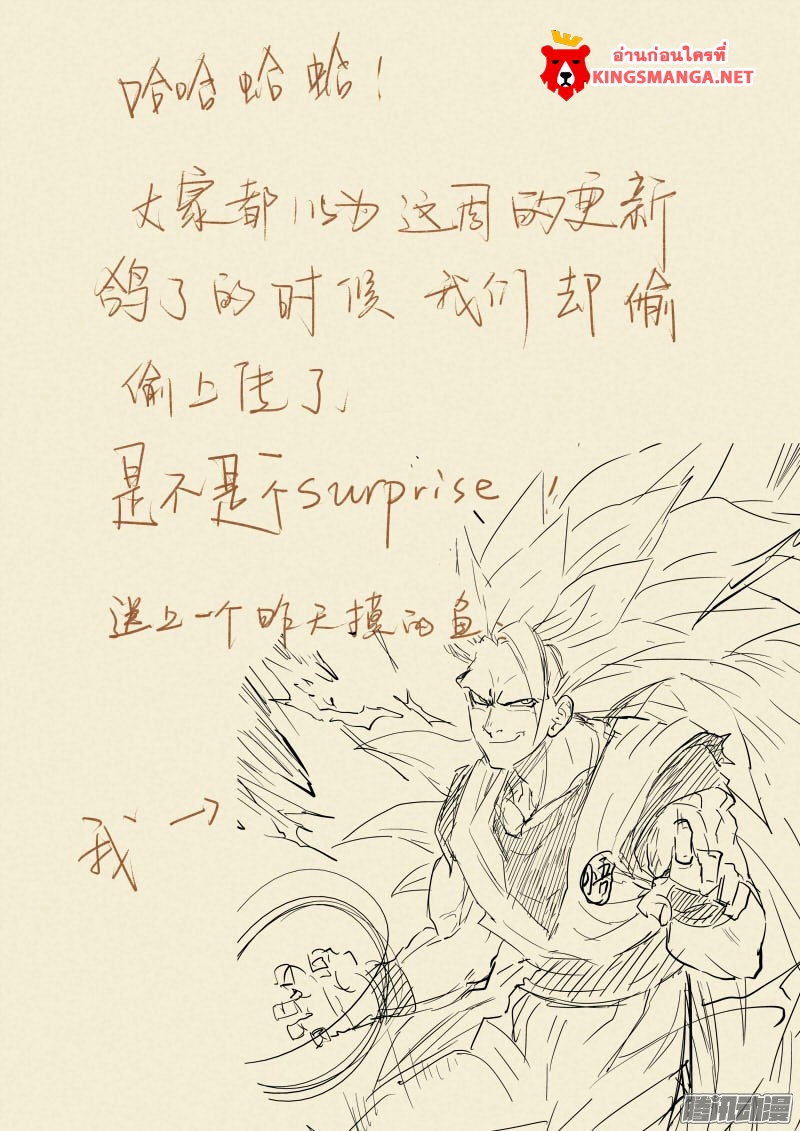 อ่านก่อนใครที่
KINGSMANGA.NET
哈哈哈哈!
大家都以为这周的更新
鸽了的时候 我们却偷
偷上传了
是不是个surprise!
送上一个昨天摸的鱼.
我→
悟
腾讯动漫